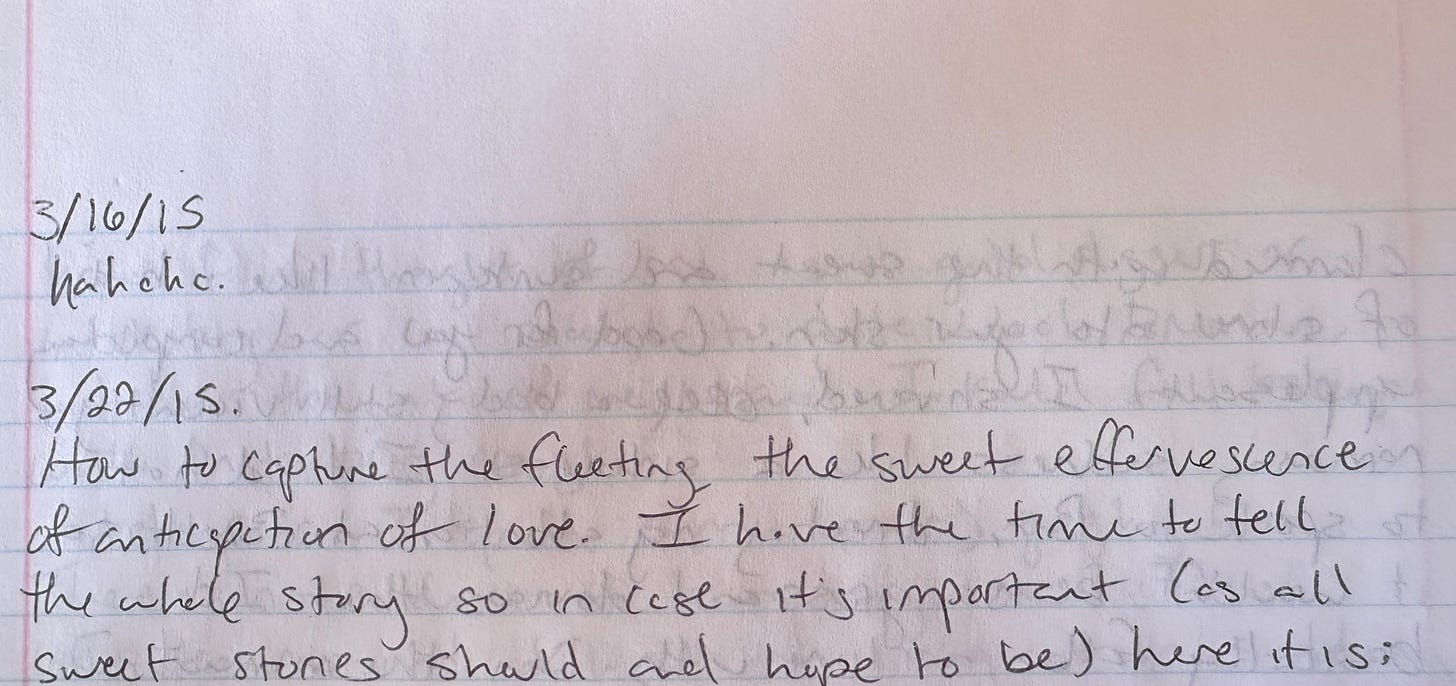 3/16/15
hahaha.
3/22/15.
How to capture the fleeting, the sweet effervescence
of anticipation of love. I have the time to tell
the whole story so in case it's important (as all
sweet stories should and hope to be) here it is: